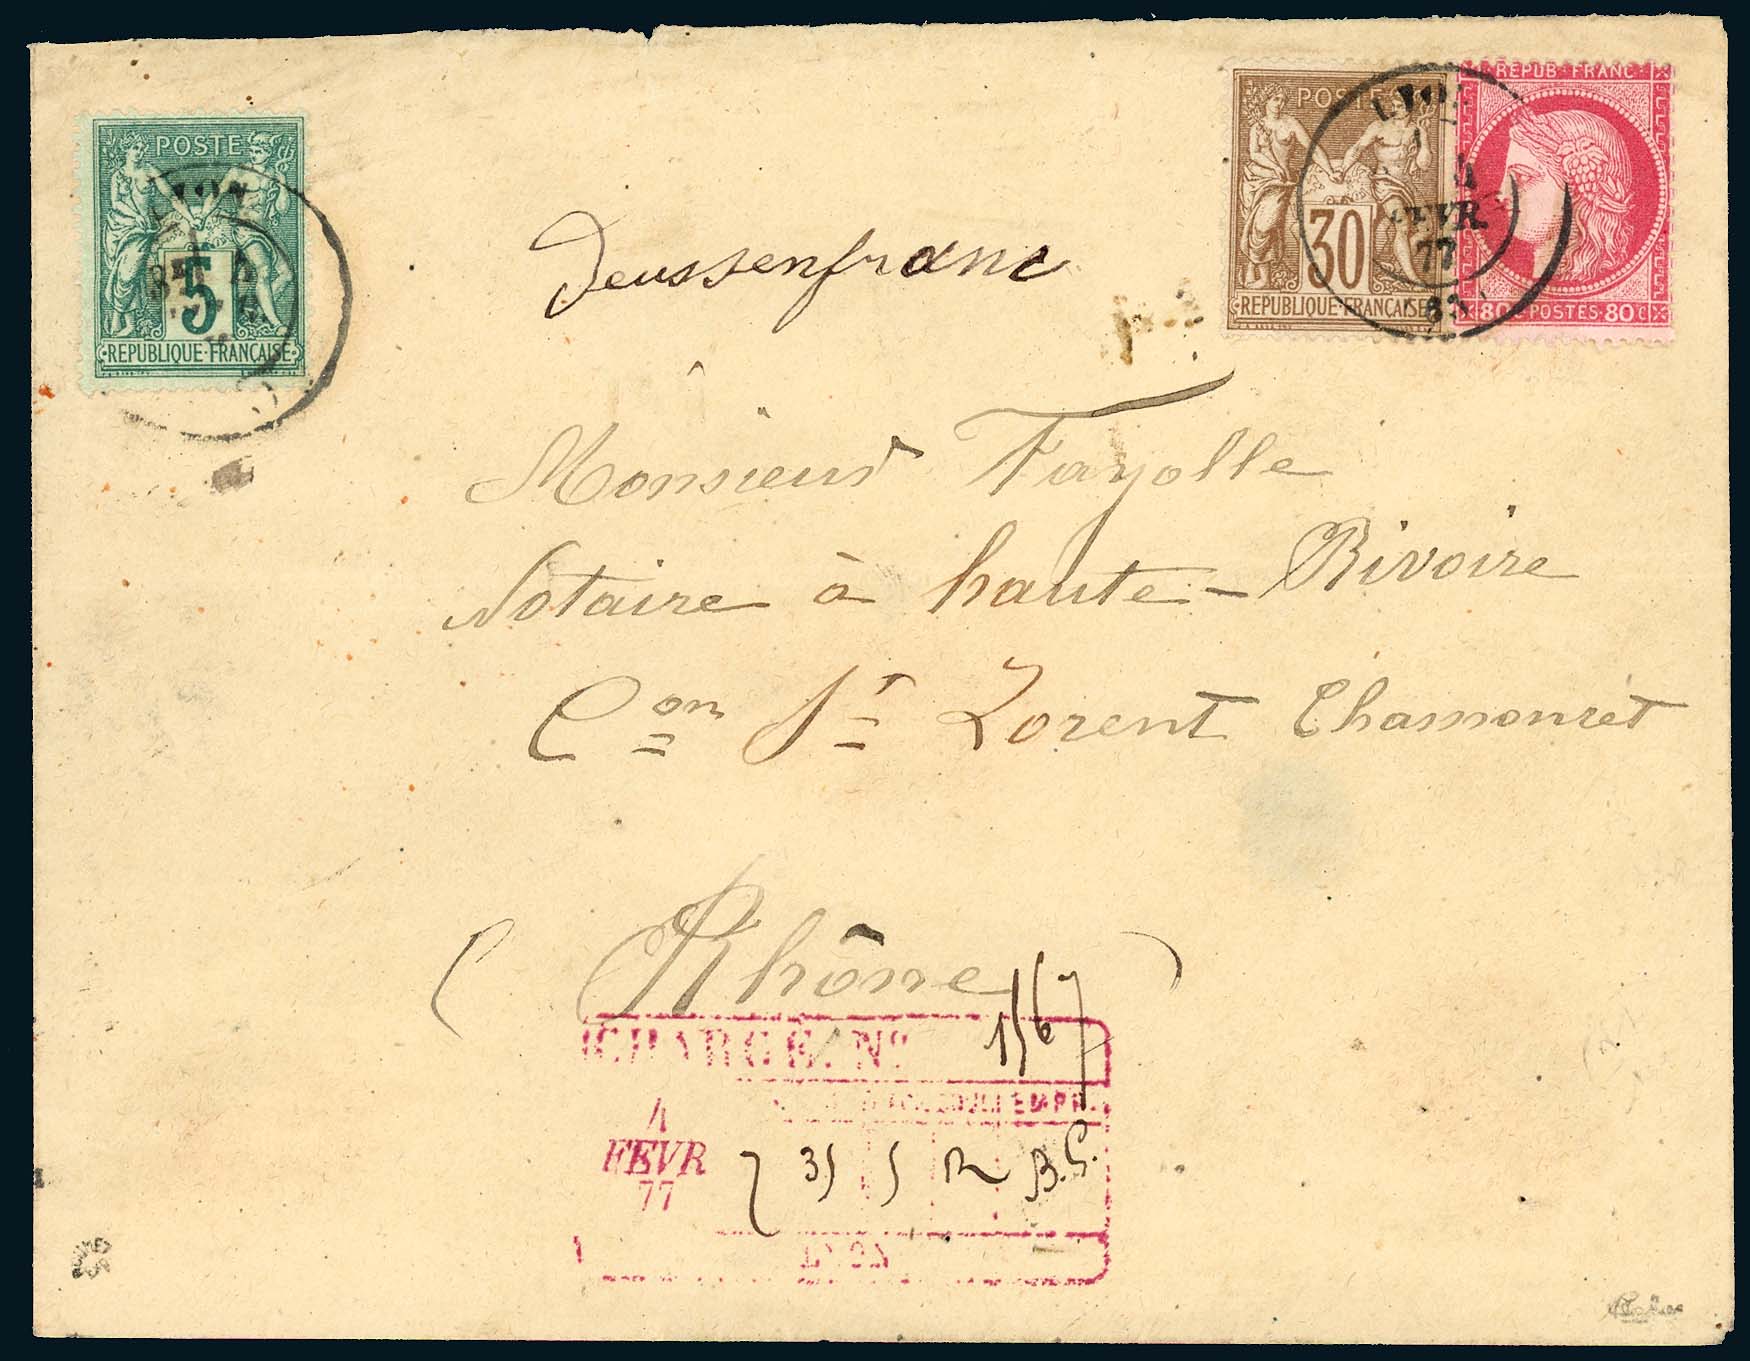 POSTE
5
REPUBLIQUE FRANÇAISE
POSTE
30
REPUBLIQUE FRANÇAISE
REPUB FRANC
80c POSTES 80c
LYON
4
FEVR
77
deussenfranc
Monsieur Fayolle
Notaire à haute-Rivoire
Con St Lorent Chamouset
( Rhône )
CHARGÉ. No 1567
4
FEVR
77
7 35 5 R B.G.
LYON